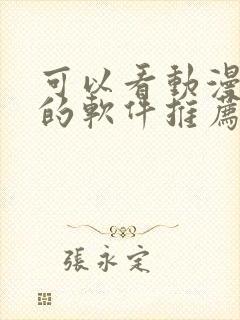 可以看動漫
的軟件推薦
張永定